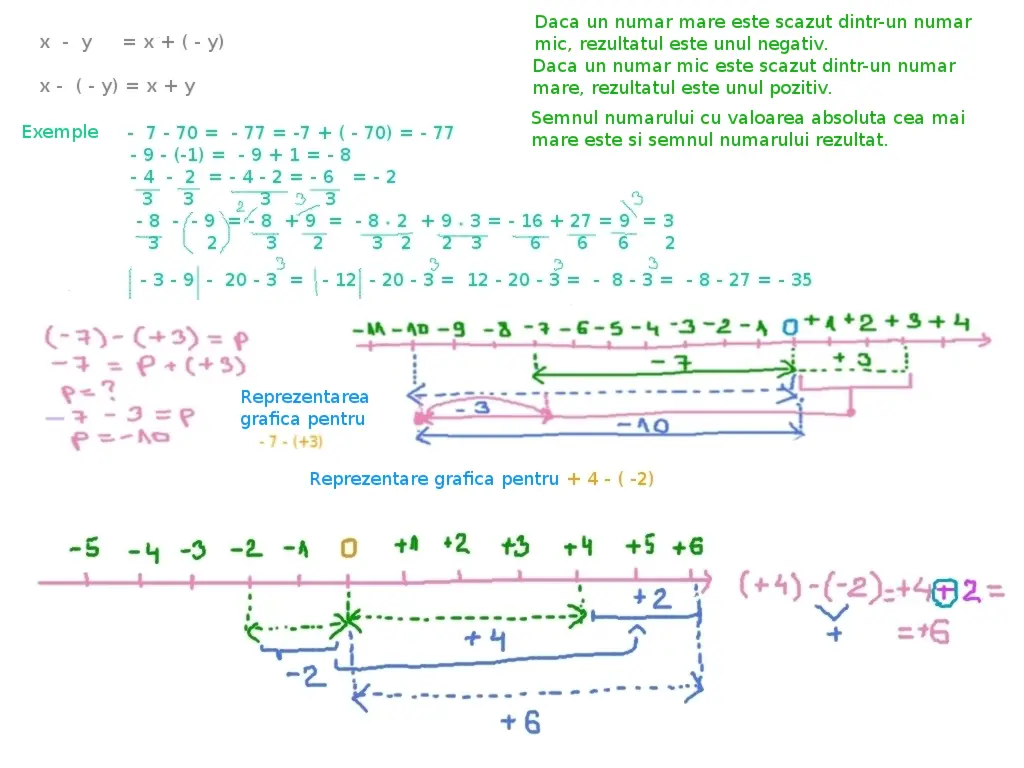 x - y = x + ( - y)
x - ( - y) = x + y
Daca un numar mare este scazut dintr-un numar
mic, rezultatul este unul negativ.
Daca un numar mic este scazut dintr-un numar
mare, rezultatul este unul pozitiv.
Semnul numarului cu valoarea absoluta cea mai
mare este si semnul numarului rezultat.
Exemple - 7 - 70 = - 77 = -7 + ( - 70) = - 77
- 9 - (-1) = - 9 + 1 = - 8
- 4 - 2 = - 4 - 2 = - 6 = - 2
3 3 3 3
2 3 3
- 8 - ( - 9 ) = - 8 + 9 = - 8 . 2 + 9 . 3 = - 16 + 27 = 9 = 3
3 2 3 2 3 2 2 3 6 6 6 2
3 3 3 3
| - 3 - 9 | - 20 - 3 = | - 12 | - 20 - 3 = 12 - 20 - 3 = - 8 - 3 = - 8 - 27 = - 35
(-7)-(+3) = p
-7 = p + (+3)
p = ?
-7 - 3 = p
p = -10
-11 -10 -9 -8 -7 -6 -5 -4 -3 -2 -1 0 +1 +2 +3 +4
-7 +3
-3
-10
Reprezentarea
grafica pentru
- 7 - (+3)
Reprezentare grafica pentru + 4 - ( -2)
-5 -4 -3 -2 -1 0 +1 +2 +3 +4 +5 +6
+2
+4
-2
+6
(+4) - (-2) = +4 + 2 =
+ = +6